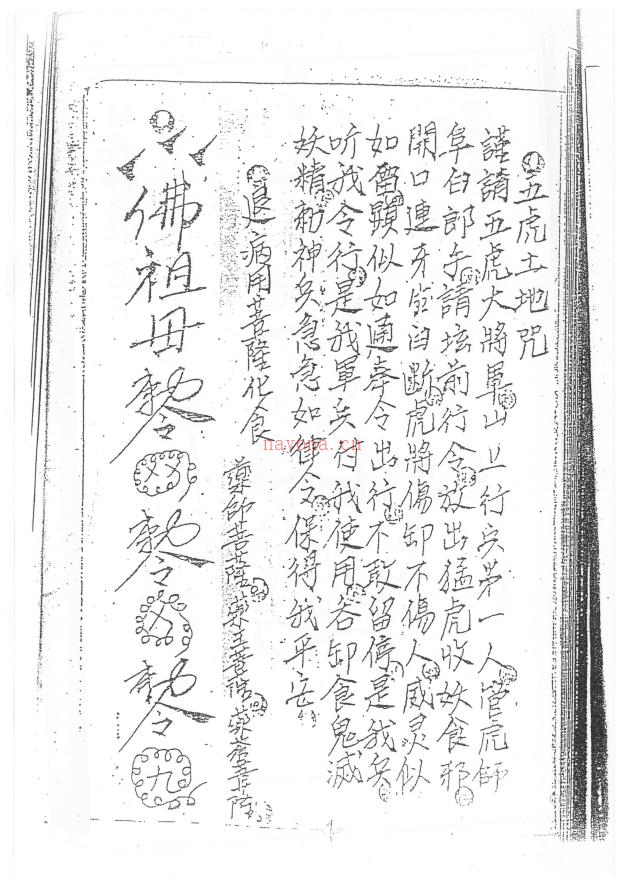 五虎土地咒
謹請五虎大將軍山上行兵第一人管虎師
阜白郎手請坛前行令放出猛虎收妖食邪
開口連牙 断虎將傷卸不傷人威灵似
如雷顕似如通奉令出行不敢留停是我兵
听我令行是我軍兵付我使用谷卸食鬼滅
妖精勅神兵急急如律令保得我平安
退病用菩隆化食
藥師菩隆 藥王菩
佛祖毋勅令 勅令 勅令 九
nayona.cn